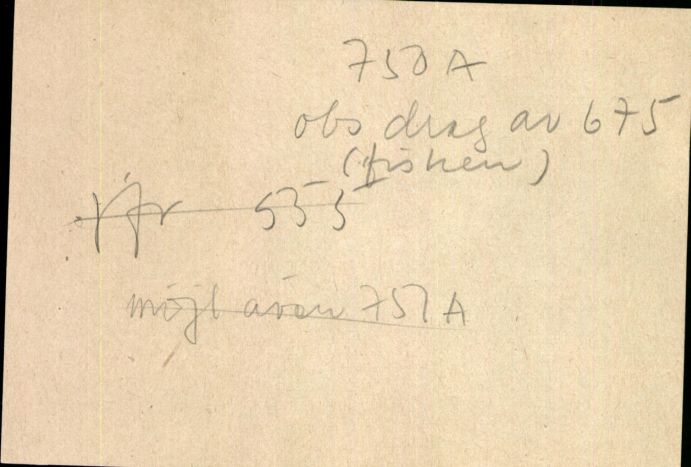 750 A
obs drag av 675
(fisken)
jfr 555
möjl även 751 A